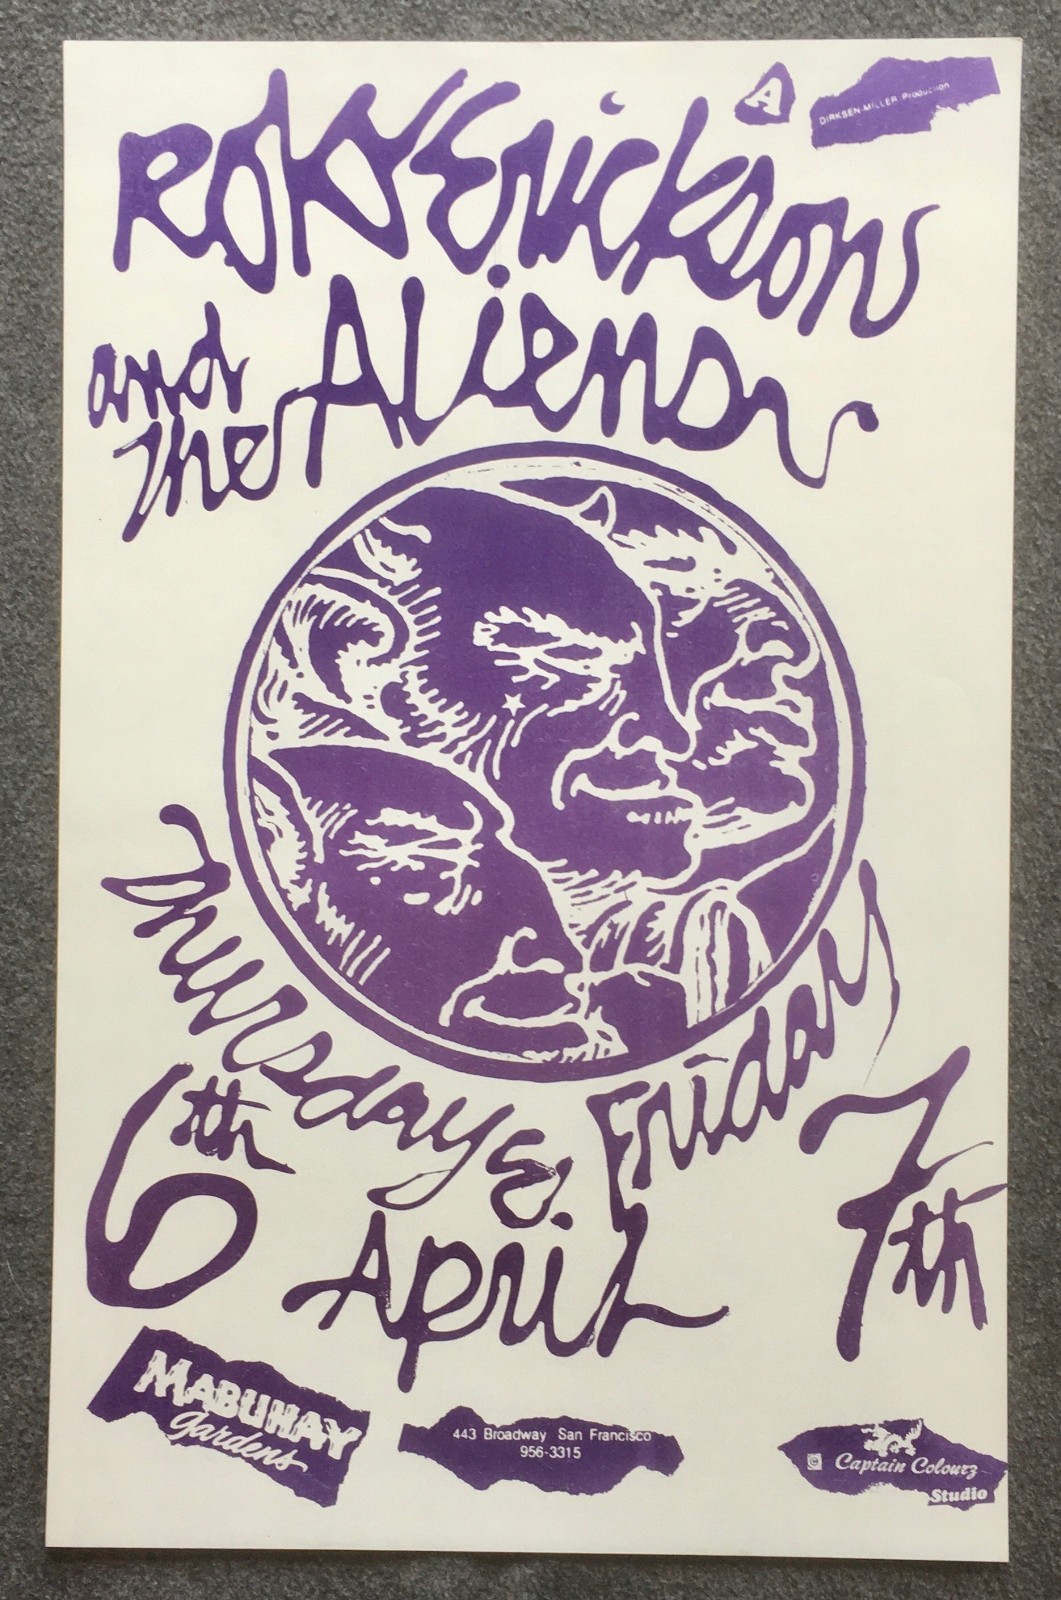 A
DIRKSEN-MILLER Production
ROKY Erickson
and
the Aliens
Thursday & Friday
6th
7th
April
MABUHAY
gardens
443 Broadway San Francisco
956-3315
© Captain Colourz
Studio